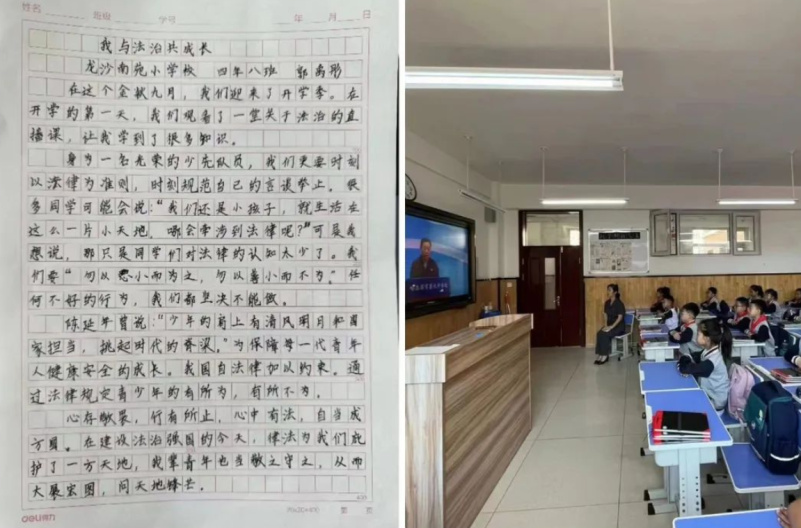 姓名 班级 学号 年 月 日
我与法治共成长
龙沙南苑小学校 四年八班 郭禹彤
在这个金秋九月，我们迎来了开学季。在
开学的第一天，我们观看了一堂关于法治的直
播课，让我学到了很多知识。
身为一名光荣的少先队员，我们更要时刻
以法律为准则，时刻规范自己的言谈举止。很
多同学可能会说：“我们还是小孩子，就生活在
这么一片小天地，哪会牵涉到法律呢？”可是我
想说，那只是同学们对法律的认知太少了。我
们要“勿以恶小而为之，勿以善小而不为。”任
何不好的行为，我们都坚决不能做。
陈延年曾说：“少年的肩上有清风明月和国
家担当，挑起时代的脊梁。”为保障每一代青年
人健康安全的成长。我国自法律加以约束。通
过法律规定青少年的有所为，有所不为。
心存敬畏，行有所止，心中有法，自当成
方圆。在建设法治强国的今天，律法为我们庇
护了一方天地，我辈青年也当敬之守之，从而
大展宏图，问天地锋芒。
deli
第 页